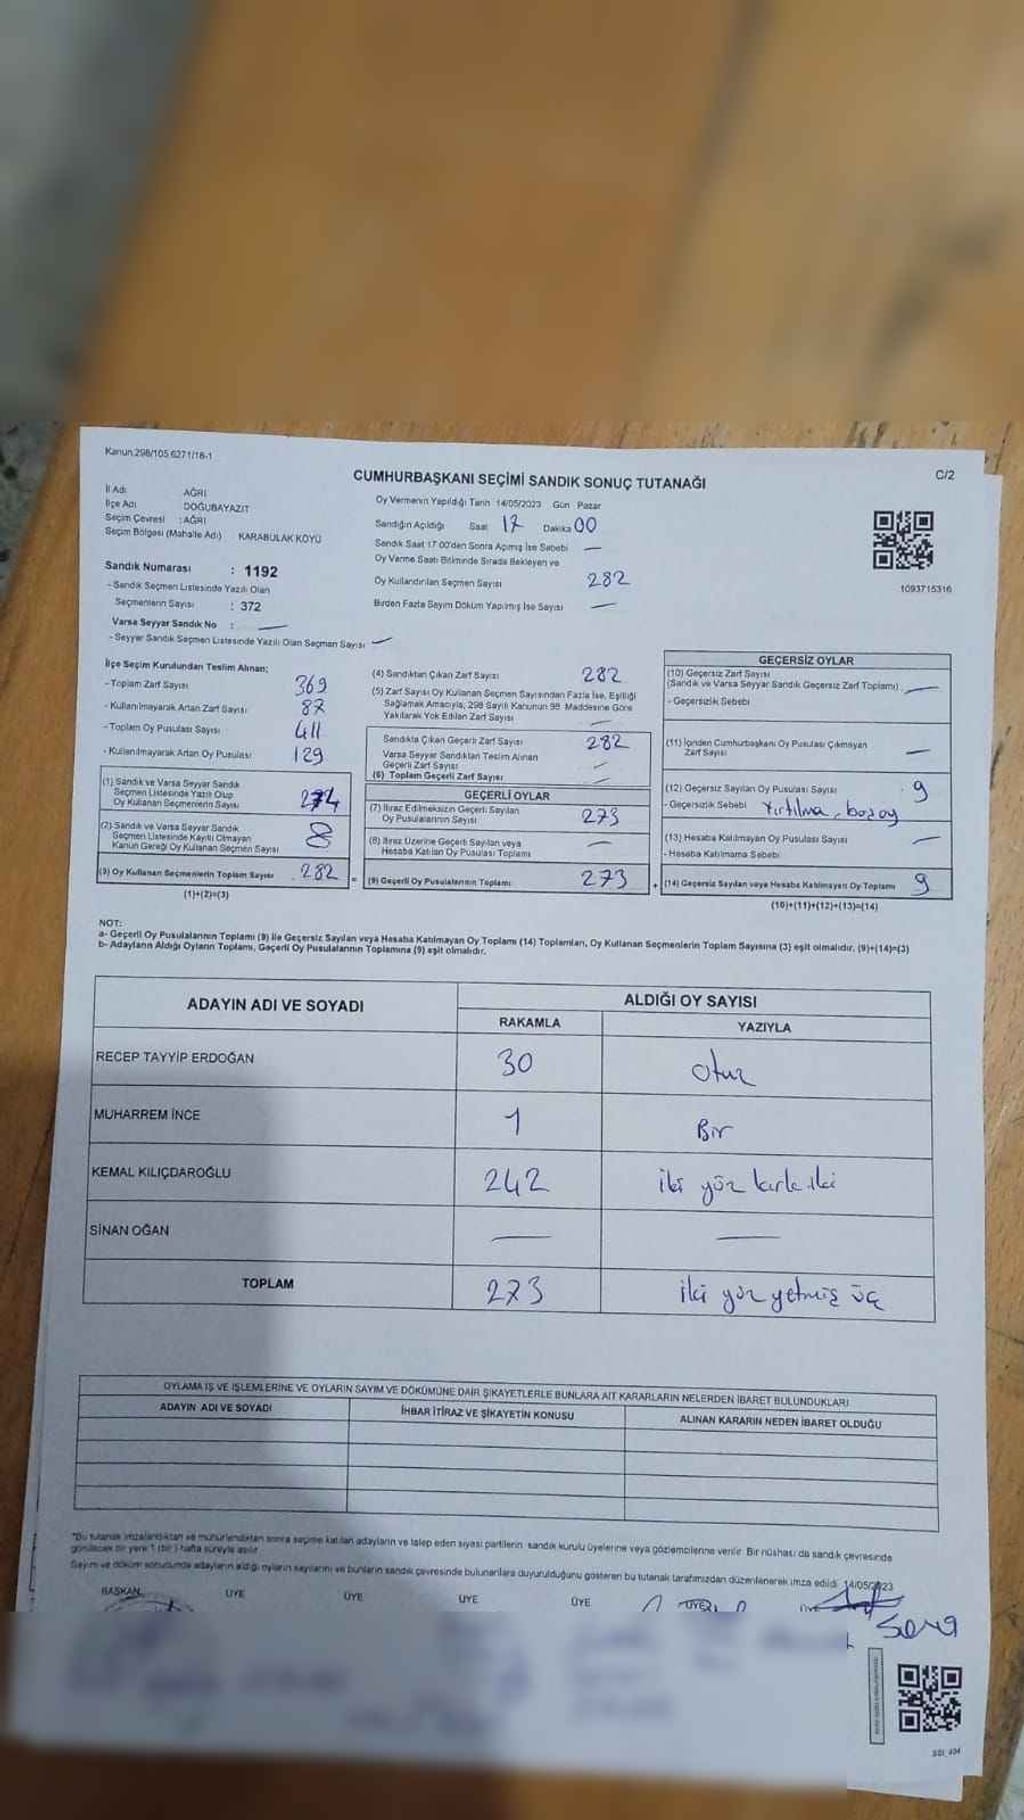 Kanun 298/105 6271/18-1
C/2
CUMHURBAŞKANI SEÇİMİ SANDIK SONUÇ TUTANAĞI
İl Adı AĞRI
İlçe Adı DOĞUBAYAZIT
Seçim Çevresi : AĞRI
Seçim Bölgesi (Mahalle Adı) KARABULAK KÖYÜ
Sandık Numarası : 1192
- Sandık Seçmen Listesinde Yazılı Olan
Seçmenlerin Sayısı : 372
Varsa Seyyar Sandık No : —
- Seyyar Sandık Seçmen Listesinde Yazılı Olan Seçmen Sayısı —
Oy Vermenin Yapıldığı Tarih 14/05/2023 Gün Pazar
Sandığın Açıldığı Saat 17 Dakika 00
Sandık Saat 17:00'den Sonra Açılmış İse Sebebi —
Oy Verme Saati Bitiminde Sırada Bekleyen ve
Oy Kullandırılan Seçmen Sayısı 282
Birden Fazla Sayım Döküm Yapılmış İse Sayısı —
1093715316
İlçe Seçim Kurulundan Teslim Alınan;
- Toplam Zarf Sayısı 369
- Kullanılmayarak Artan Zarf Sayısı 87
- Toplam Oy Pusulası Sayısı 411
- Kullanılmayarak Artan Oy Pusulası 129
(1) Sandık ve Varsa Seyyar Sandık
Seçmen Listesinde Yazılı Olup
Oy Kullanan Seçmenlerin Sayısı 274
(2) Sandık ve Varsa Seyyar Sandık
Seçmen Listesinde Kayıtlı Olmayan
Kanun Gereği Oy Kullanan Seçmen Sayısı 8
(3) Oy Kullanan Seçmenlerin Toplam Sayısı 282
(1)+(2)=(3)
(4) Sandıktan Çıkan Zarf Sayısı 282
(5) Zarf Sayısı Oy Kullanan Seçmen Sayısından Fazla İse, Eşitliği
Sağlamak Amacıyla, 298 Sayılı Kanunun 98. Maddesine Göre
Yakılarak Yok Edilen Zarf Sayısı —
Sandıkta Çıkan Geçerli Zarf Sayısı 282
Varsa Seyyar Sandıktan Teslim Alınan
Geçerli Zarf Sayısı —
(6) Toplam Geçerli Zarf Sayısı —
GEÇERLİ OYLAR
(7) İtiraz Edilmeksizin Geçerli Sayılan
Oy Pusulalarının Sayısı 273
(8) İtiraz Üzerine Geçerli Sayılan veya
Hesaba Katılan Oy Pusulası Toplamı —
(9) Geçerli Oy Pusulalarının Toplamı 273
GEÇERSİZ OYLAR
(10) Geçersiz Zarf Sayısı
(Sandık ve Varsa Seyyar Sandık Geçersiz Zarf Toplamı) —
- Geçersizlik Sebebi
(11) İçinden Cumhurbaşkanı Oy Pusulası Çıkmayan
Zarf Sayısı —
(12) Geçersiz Sayılan Oy Pusulası Sayısı 9
- Geçersizlik Sebebi Yırtılma, boş oy
(13) Hesaba Katılmayan Oy Pusulası Sayısı —
- Hesaba Katılmama Sebebi
(14) Geçersiz Sayılan veya Hesaba Katılmayan Oy Toplamı 9
(10)+(11)+(12)+(13)=(14)
NOT:
a- Geçerli Oy Pusulalarının Toplamı (9) ile Geçersiz Sayılan veya Hesaba Katılmayan Oy Toplamı (14) Toplamları, Oy Kullanan Seçmenlerin Toplam Sayısına (3) eşit olmalıdır. (9)+(14)=(3)
b- Adayların Aldığı Oyların Toplamı, Geçerli Oy Pusulalarının Toplamına (9) eşit olmalıdır.
ADAYIN ADI VE SOYADI ALDIĞI OY SAYISI
RAKAMLA YAZIYLA
RECEP TAYYİP ERDOĞAN 30 otuz
MUHARREM İNCE 1 Bir
KEMAL KILIÇDAROĞLU 242 iki yüz kırk iki
SİNAN OĞAN — —
TOPLAM 273 iki yüz yetmiş üç
OYLAMA İŞ VE İŞLEMLERİNE VE OYLARIN SAYIM VE DÖKÜMÜNE DAİR ŞİKAYETLERLE BUNLARA AİT KARARLARIN NELERDEN İBARET BULUNDUKLARI
ADAYIN ADI VE SOYADI İHBAR İTİRAZ VE ŞİKAYETİN KONUSU ALINAN KARARIN NEDEN İBARET OLDUĞU
*Bu tutanak imzalandıktan ve mühürlendikten sonra seçime katılan adayların ve talep eden siyasi partilerin sandık kurulu üyelerine veya gözlemcilerine verilir. Bir nüshası da sandık çevresinde
görülecek bir yere 1 (bir) hafta süreyle asılır.
Sayım ve döküm sonucunda adayların aldığı oyların sayılarını ve bunların sandık çevresinde bulunanlara duyurulduğunu gösteren bu tutanak tarafımızdan düzenlenerek imza edildi. 14/05/2023
BAŞKAN ÜYE ÜYE ÜYE ÜYE ÜYE